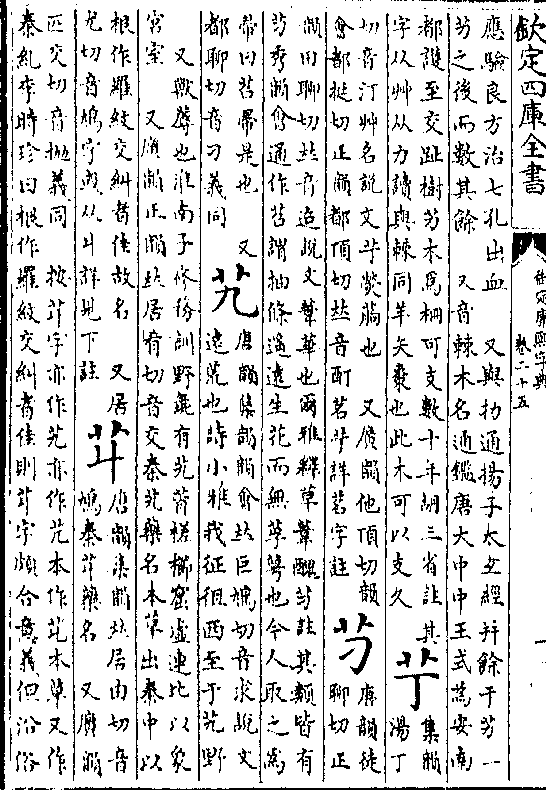 欽定四庫全書
御定康熙字典
卷二十五
應驗良方治七孔出血　又與扐通揚子太玄經幷餘于艻一
艻之後而數其餘　又音棘木名通鑑唐大中中王式為安南
都護至交趾樹艻木為柵可支數十年胡三省註其
字从艸从力讀與棘同羊矢棗也此木可以支久
艼
集韻
湯丁
切音汀艸名說文艼熒朐也　又廣韻他頂切韻
會都挺切正韻都頂切𠀤音酊茗艼詳茗字註
芀
唐韻徒
聊切正
韻田聊切𠀤音迢說文葦華也爾雅釋草葦醜芀註其類皆有
芀秀韻會通作苕謂抽條遙遠生花而無莩萼也今人取之為
帚曰苕帚是也　又
都聊切音刁義同
艽
唐韻集韻韻會𠀤巨鳩切音求說文
遠荒也詩小雅我征徂西至于艽野
又獸蓐也淮南子修務訓野彘有艽莦槎櫛窟虛連比以象
宮室　又廣韻正韻𠀤居肴切音交秦艽藥名本草出秦中以
根作羅紋交糾者佳故名　又居
尤切音鳩字或从丩詳見下註
唐韻集韻𠀤居由切音
鳩秦藥名　又廣韻
匹交切音拋義同　按字亦作艽亦作芃本作芁本草又作
秦糺李時珍曰根作羅紋交糾者佳則字頗合意義但沿俗